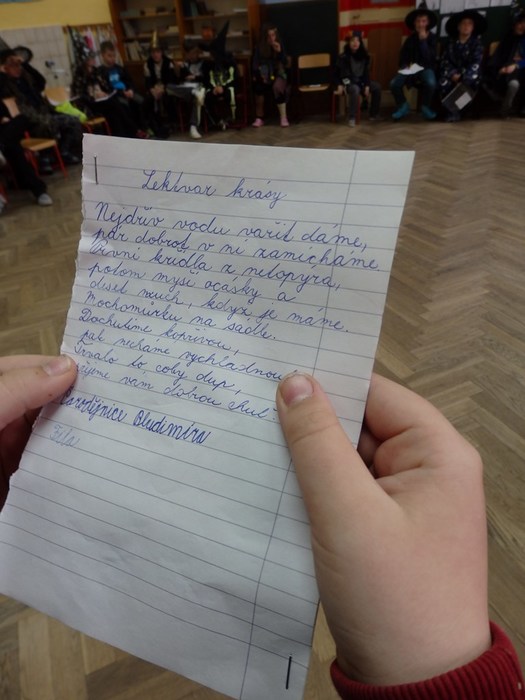 Lektvar krásy
Nejdřív vodu vařit dáme,
pár dobrot v ní zamícháme
První křídla z netopýra,
potom myší ocásky a
deset much, když je máme.
Mochomůrku na sádle.
Dochutíme kopřivou,
pak necháme vychladnout
Trvalo to coby dup,
přejeme vám dobrou chuť
Čarodějnice Bludimíra